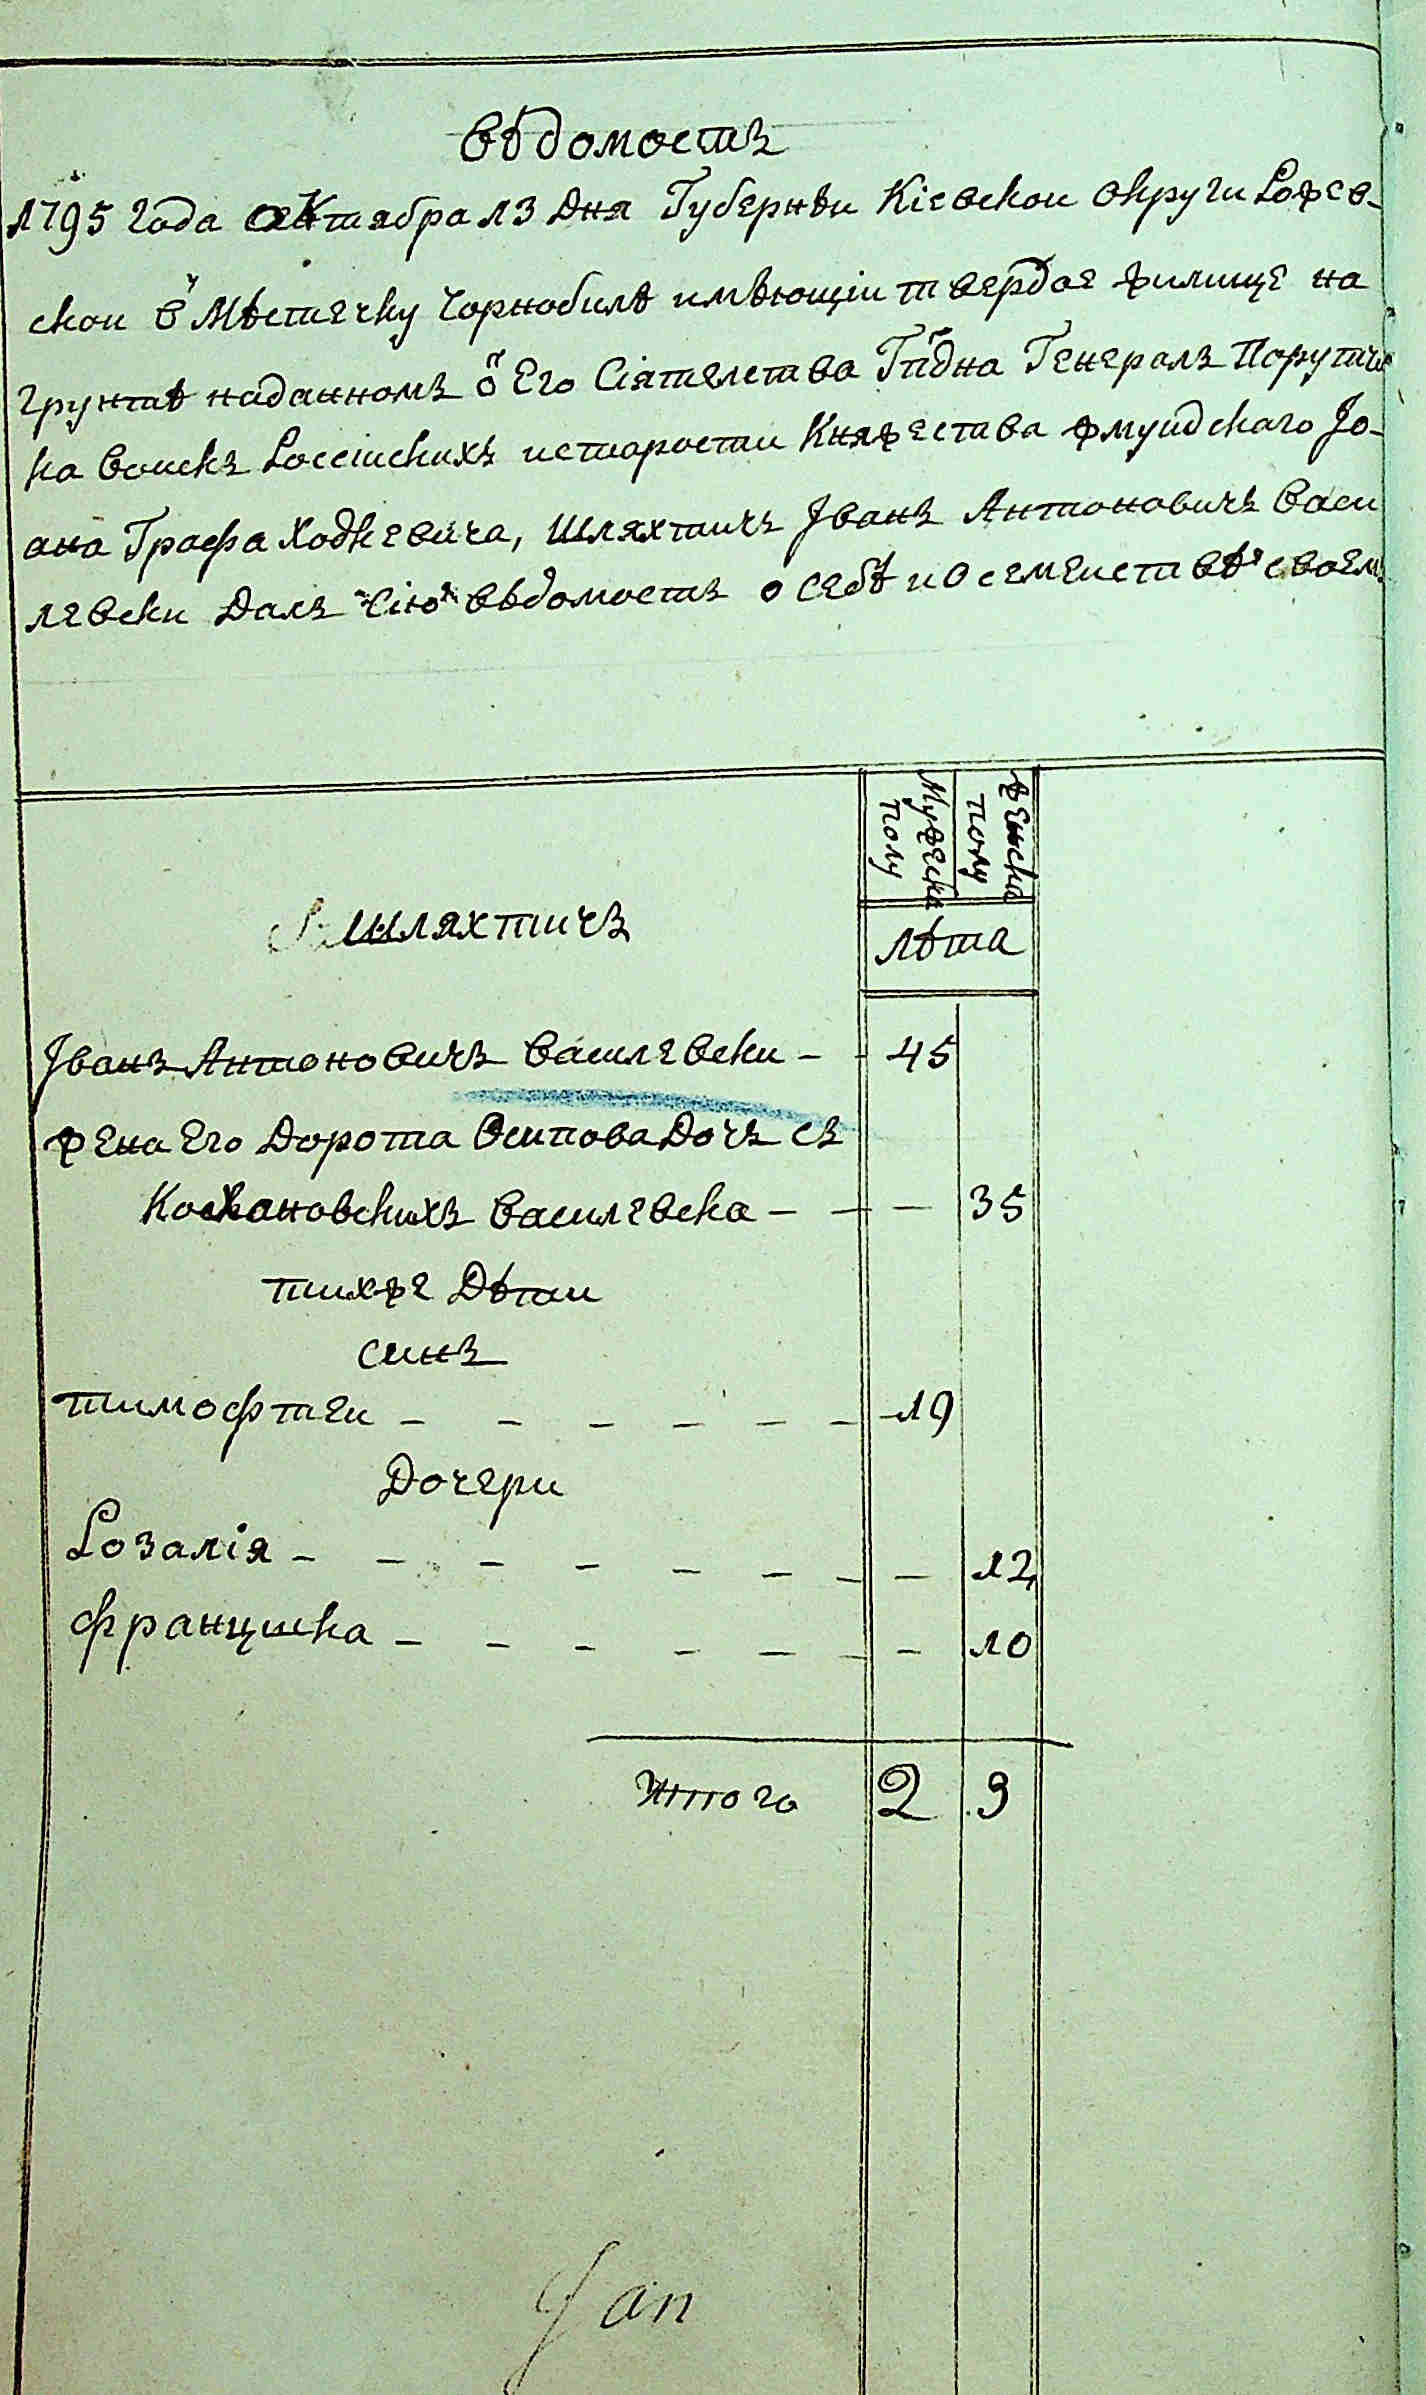 Вѣдомостъ
1795 Года Октября 13 Дня Губернѣи Кіевскои Округи Рожев-
скои в Мѣстечку Чорнобилѣ имѣющіи твердое жилище на
грунтѣ наданномъ ѿ Его Сіятелства Гпдна Генералъ Порутчи
ка Воискъ Россіискихъ истарости Княжества Жмуидскаго Іо-
ана Графа Ходкевича, Шляхтичъ Іванъ Антоновичъ Васи
левски Далъ Сію Вѣдомостъ о Себѣ и о семеиствѣ своем
Мужеска полу
женска полу
Шляхтичъ
Лѣта
Іванъ Антоновичъ Василевски - - 45
жена Его Дорота Осипова Дочъ съ
Кохановскихъ Василевска - - - 35
тихже Дѣти
синъ
тимофтеи - - - - - - - 19
Дочери
Розалія - - - - - - - - 12
францишка - - - - - - - 10
Итого 2 3
Jan